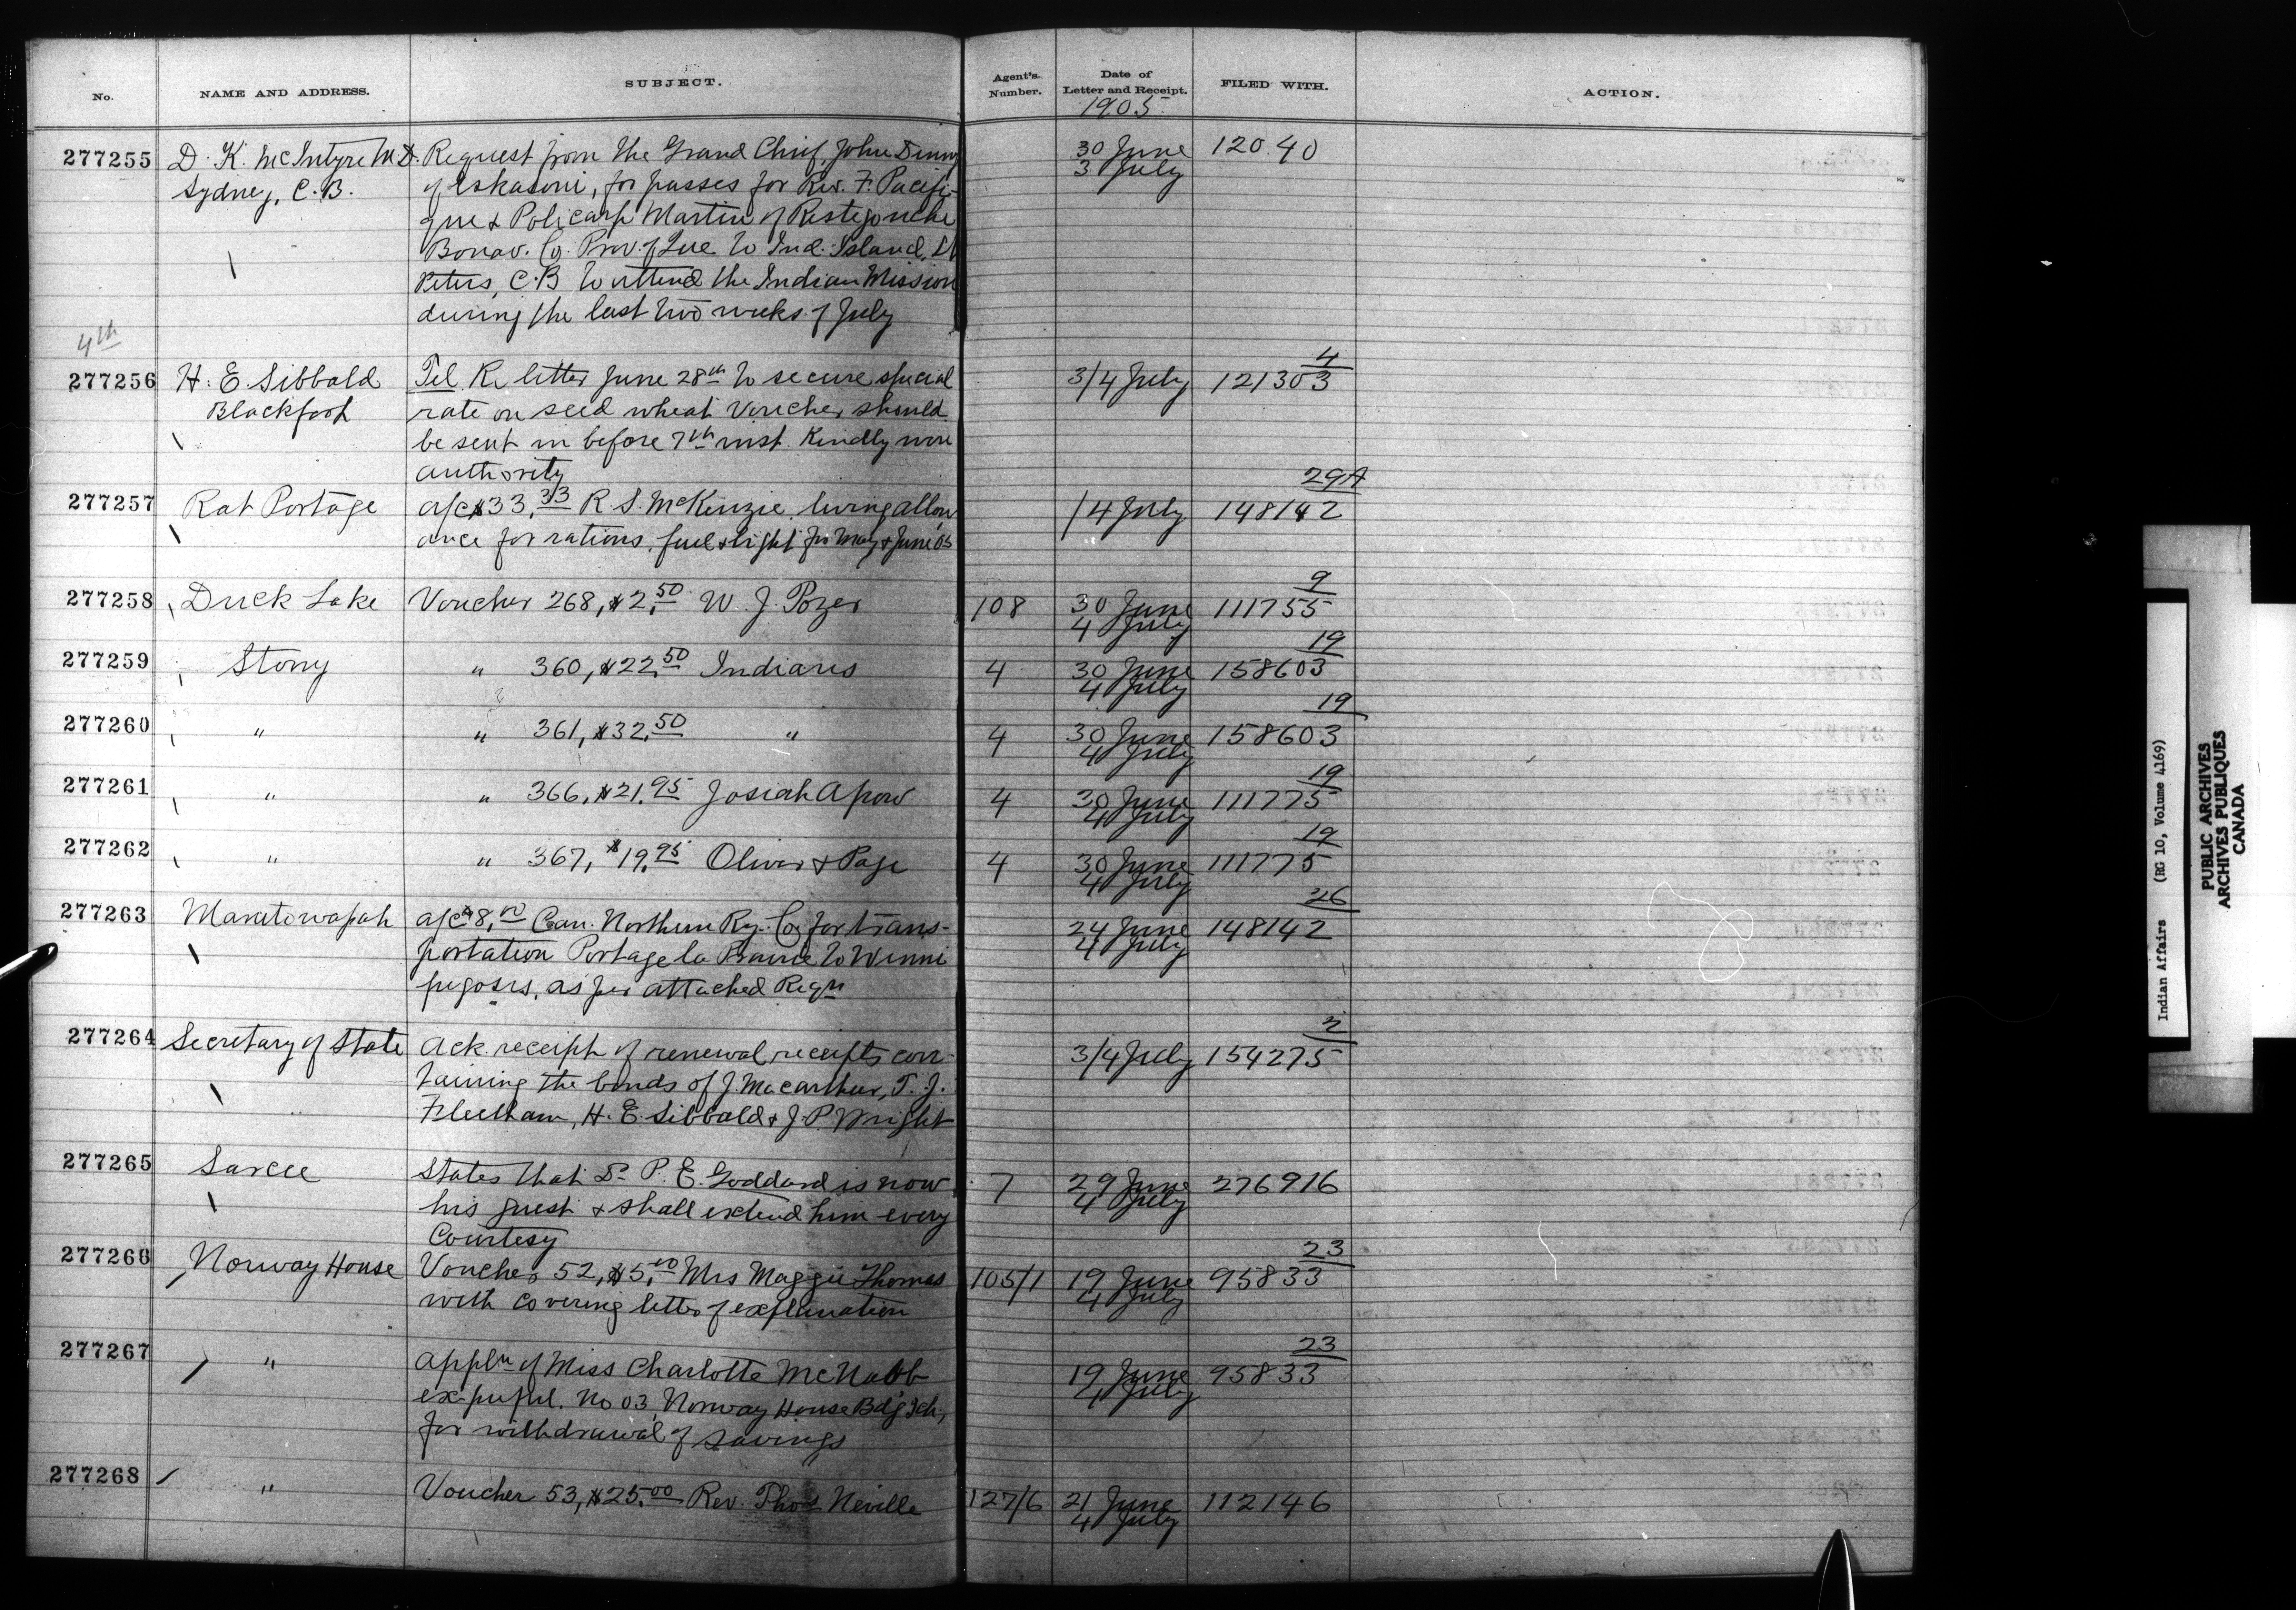 No. NAME AND ADDRESS. SUBJECT. Agent's Number. Date of Letter and Receipt. FILED WITH. ACTION.
1905
277255 D. K. McIntyre M.D. Request from the Grand Chief, John Denny 30 June 120.40
Sydney, C.B. of Eskasoni, for passes for Rev. F. Pacifi- 3 July
que & Policarp Martin of Ristegouche
Bonav. Co. Prov. of Que to Ind. Island, St
Peters, C.B to attend the Indian Mission
during the last two weeks of July
4th
277256 H. E. Sibbald Tel. Re letter June 28th to secure special 3/4 July 121303 4
Blackfoot rate on seed wheat Voucher should
be sent in before 7th inst. Kindly wire
authority
277257 Rat Portage a/c $33.33 R. S. McKenzie, living allow 14 July 148142 29A
ance for rations, fuel & light for May & June 05
277258 Duck Lake Voucher 268, $2.50 W. J. Pozer 108 30 June 111755 9
4 July
277259 Stony " 360, $22.50 Indians 4 30 June 158603 19
4 July
277260 " " 361, $32.50 " 4 30 June 158603 19
4 July
277261 " " 366, $21.95 Josiah Apow 4 30 June 111775 19
4 July
277262 " " 367, $19.95 Oliver & Page 4 30 June 111775 19
4 July
277263 Manitowapah a/c $8.00 Can. Northern Ry. Co for trans- 24 June 148142 26
portation Portage la Prairie to Winni 4 July
pegosis, as per attached Reqn
277264 Secretary of State Ack. receipt of renewal receipts con- 3/4 July 154275 2
taining the bonds of J. Macarthur, T. J.
Fleetham, H. E. Sibbald & J. P. Wright
277265 Sarcee States that Dr P. E. Goddard is now 7 29 June 276916
his guest & shall extend him every 4 July
Courtesy
277266 Norway House Voucher 52, $5.00 Mrs Maggie Thomas 105/1 19 June 95833 23
with covering letter of explanation 4 July
277267 " Appln of Miss Charlotte McNabb 19 June 95833 23
ex-pupil. No 03, Norway House Bdg Sch, 4 July
for withdrawal of savings
277268 " Voucher 53, $25.00 Rev. Thos Neville 127/6 21 June 112146
4 July
Indian Affairs (RG 10, Volume 4169)
PUBLIC ARCHIVES
ARCHIVES PUBLIQUES
CANADA